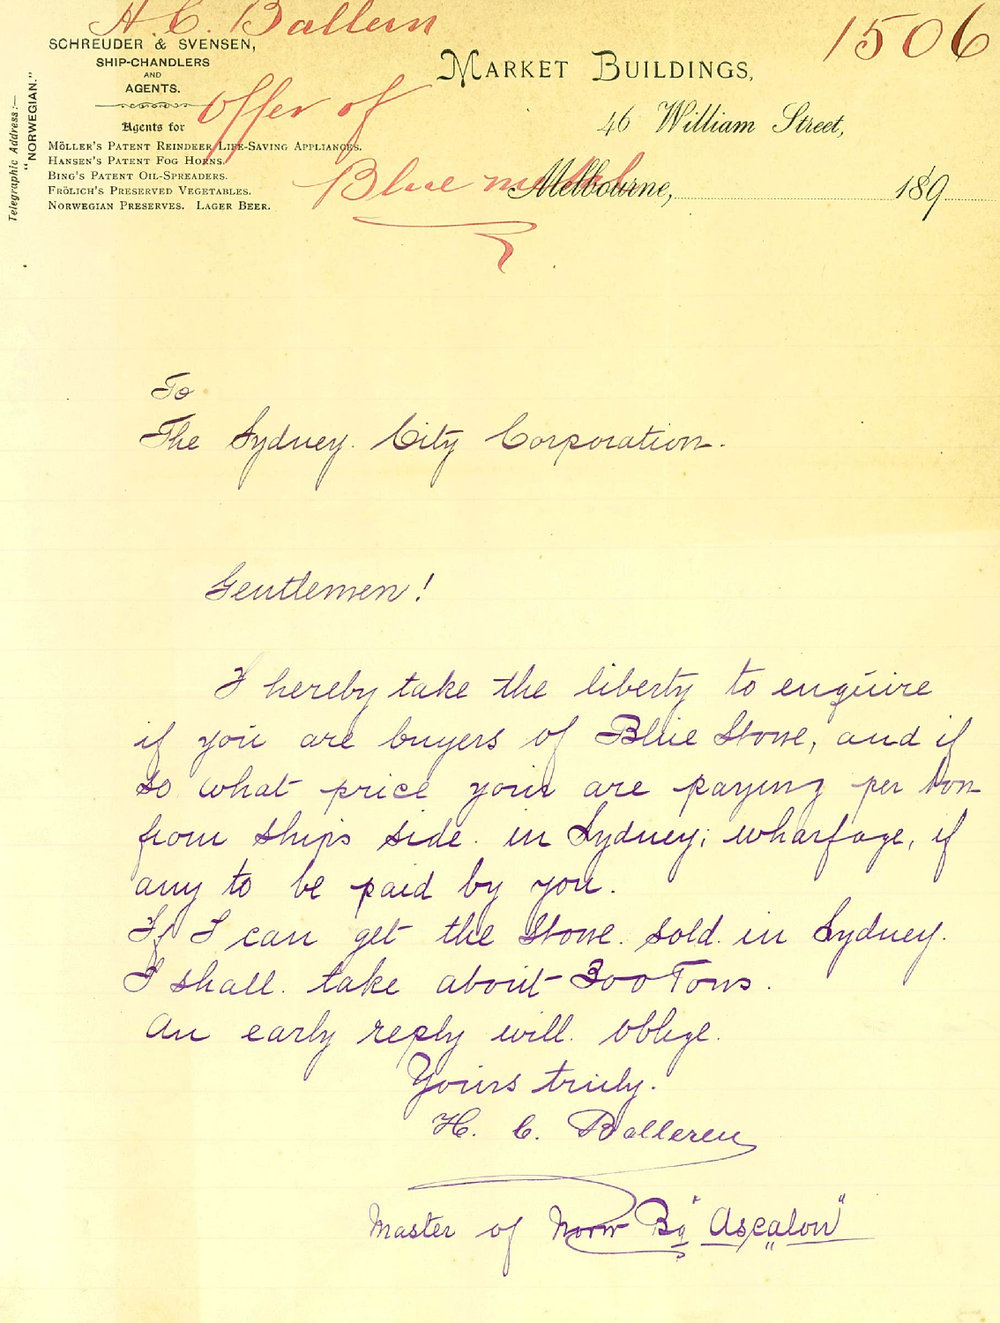 H. C. Ballern
1506
SCHREUDER & SVENSEN,
SHIP-CHANDLERS
AND
AGENTS.
Agents for
MÖLLER'S PATENT REINDEER LIFE-SAVING APPLIANCES.
HANSEN'S PATENT FOG HORNS.
BING'S PATENT OIL-SPREADERS.
FRÖLICH'S PRESERVED VEGETABLES.
NORWEGIAN PRESERVES. LAGER BEER.
Telegraphic Address:—
"NORWEGIAN."
Offer of
Blue metal
MARKET BUILDINGS,
46 William Street,
Melbourne, 189
To
The Sydney City Corporation.
Gentlemen!
I hereby take the liberty to enquire
if you are buyers of Blue Stone, and if
so what price your are paying per ton
from ships side in Sydney; wharfage, if
any to be paid by you.
If I can get the Stone sold in Sydney.
I shall take about 300 Tons.
An early reply will oblige.
Yours truly.
H. C. Balleren
Master of Norw Bq "Ascalon"